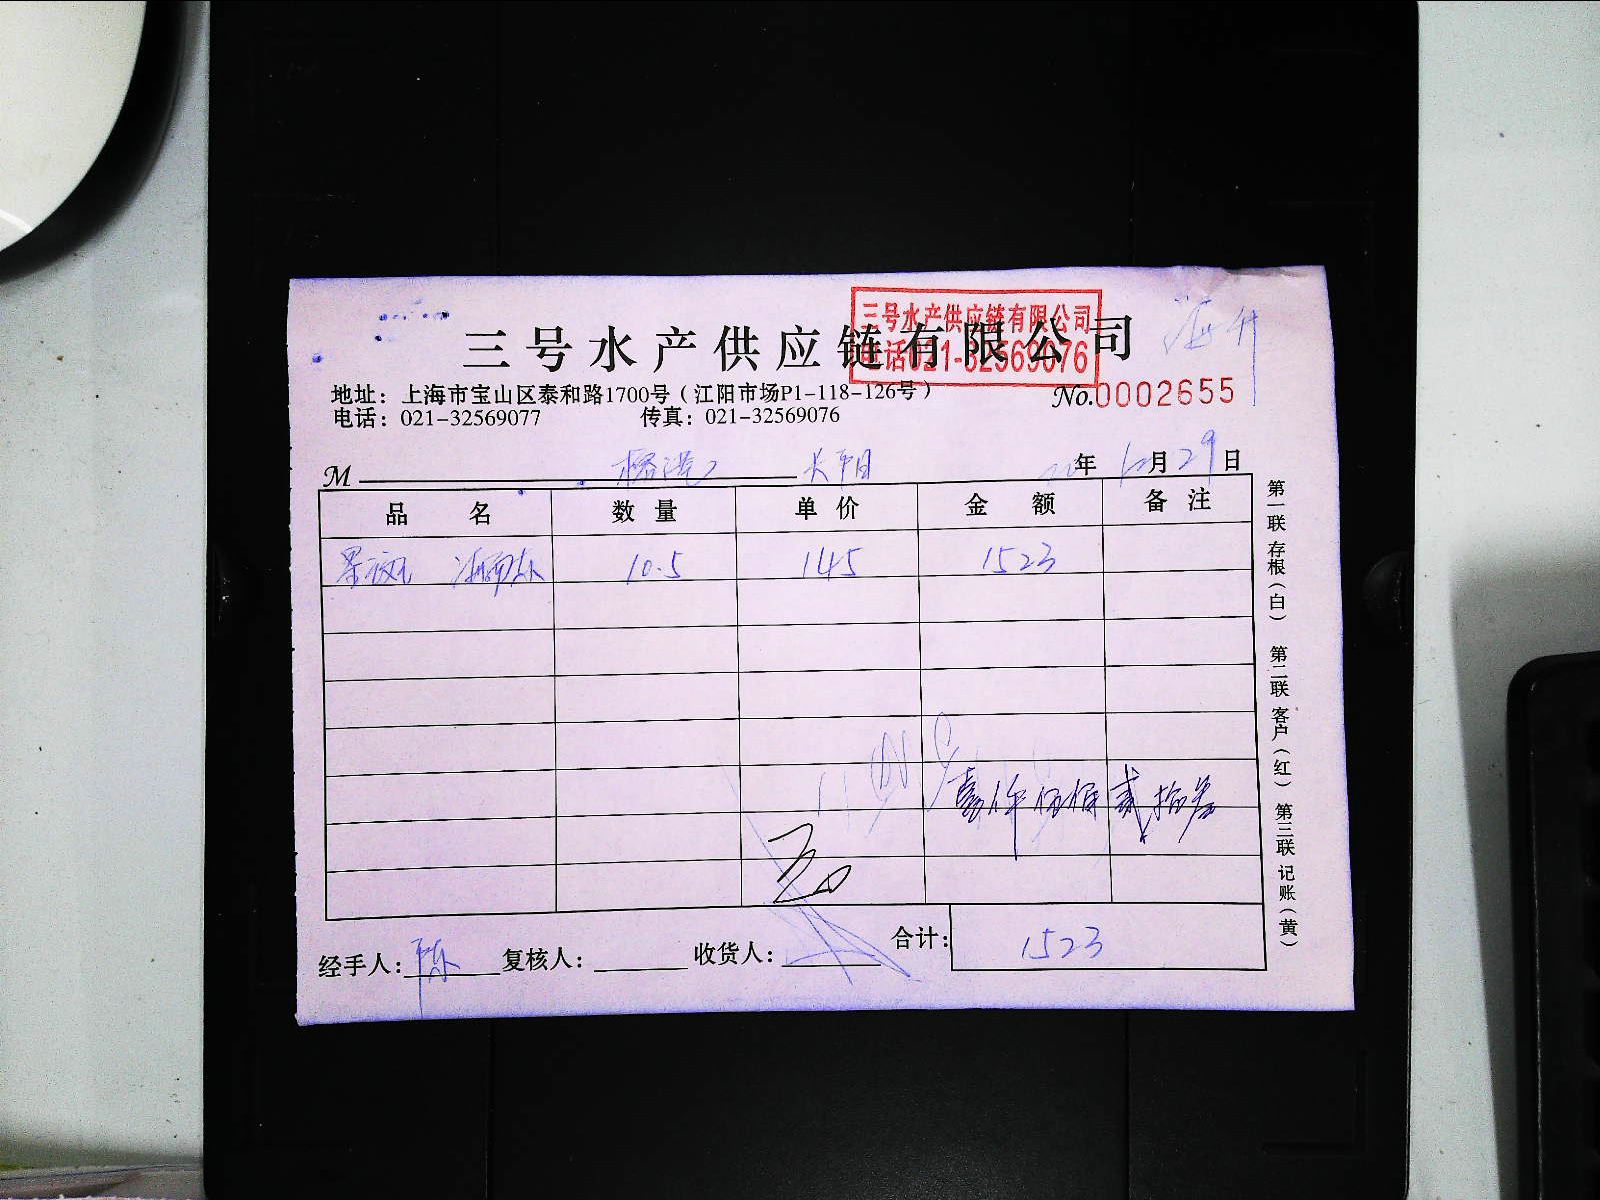 三号水产供应链有限公司
三号水产供应链有限公司
电话021-32569076
地址：上海市宝山区泰和路1700号（江阳市场P1-118-126号）
No.0002655
电话：021-32569077 传真：021-32569076
M 年 月 29 日
品 名 数 量 单 价 金 额 备 注
10.5 145 1523
壹仟伍佰贰拾叁
合计： 1523
经手人：陈 复核人： 收货人：
第一联 存根（白） 第二联 客户（红） 第三联 记账（黄）